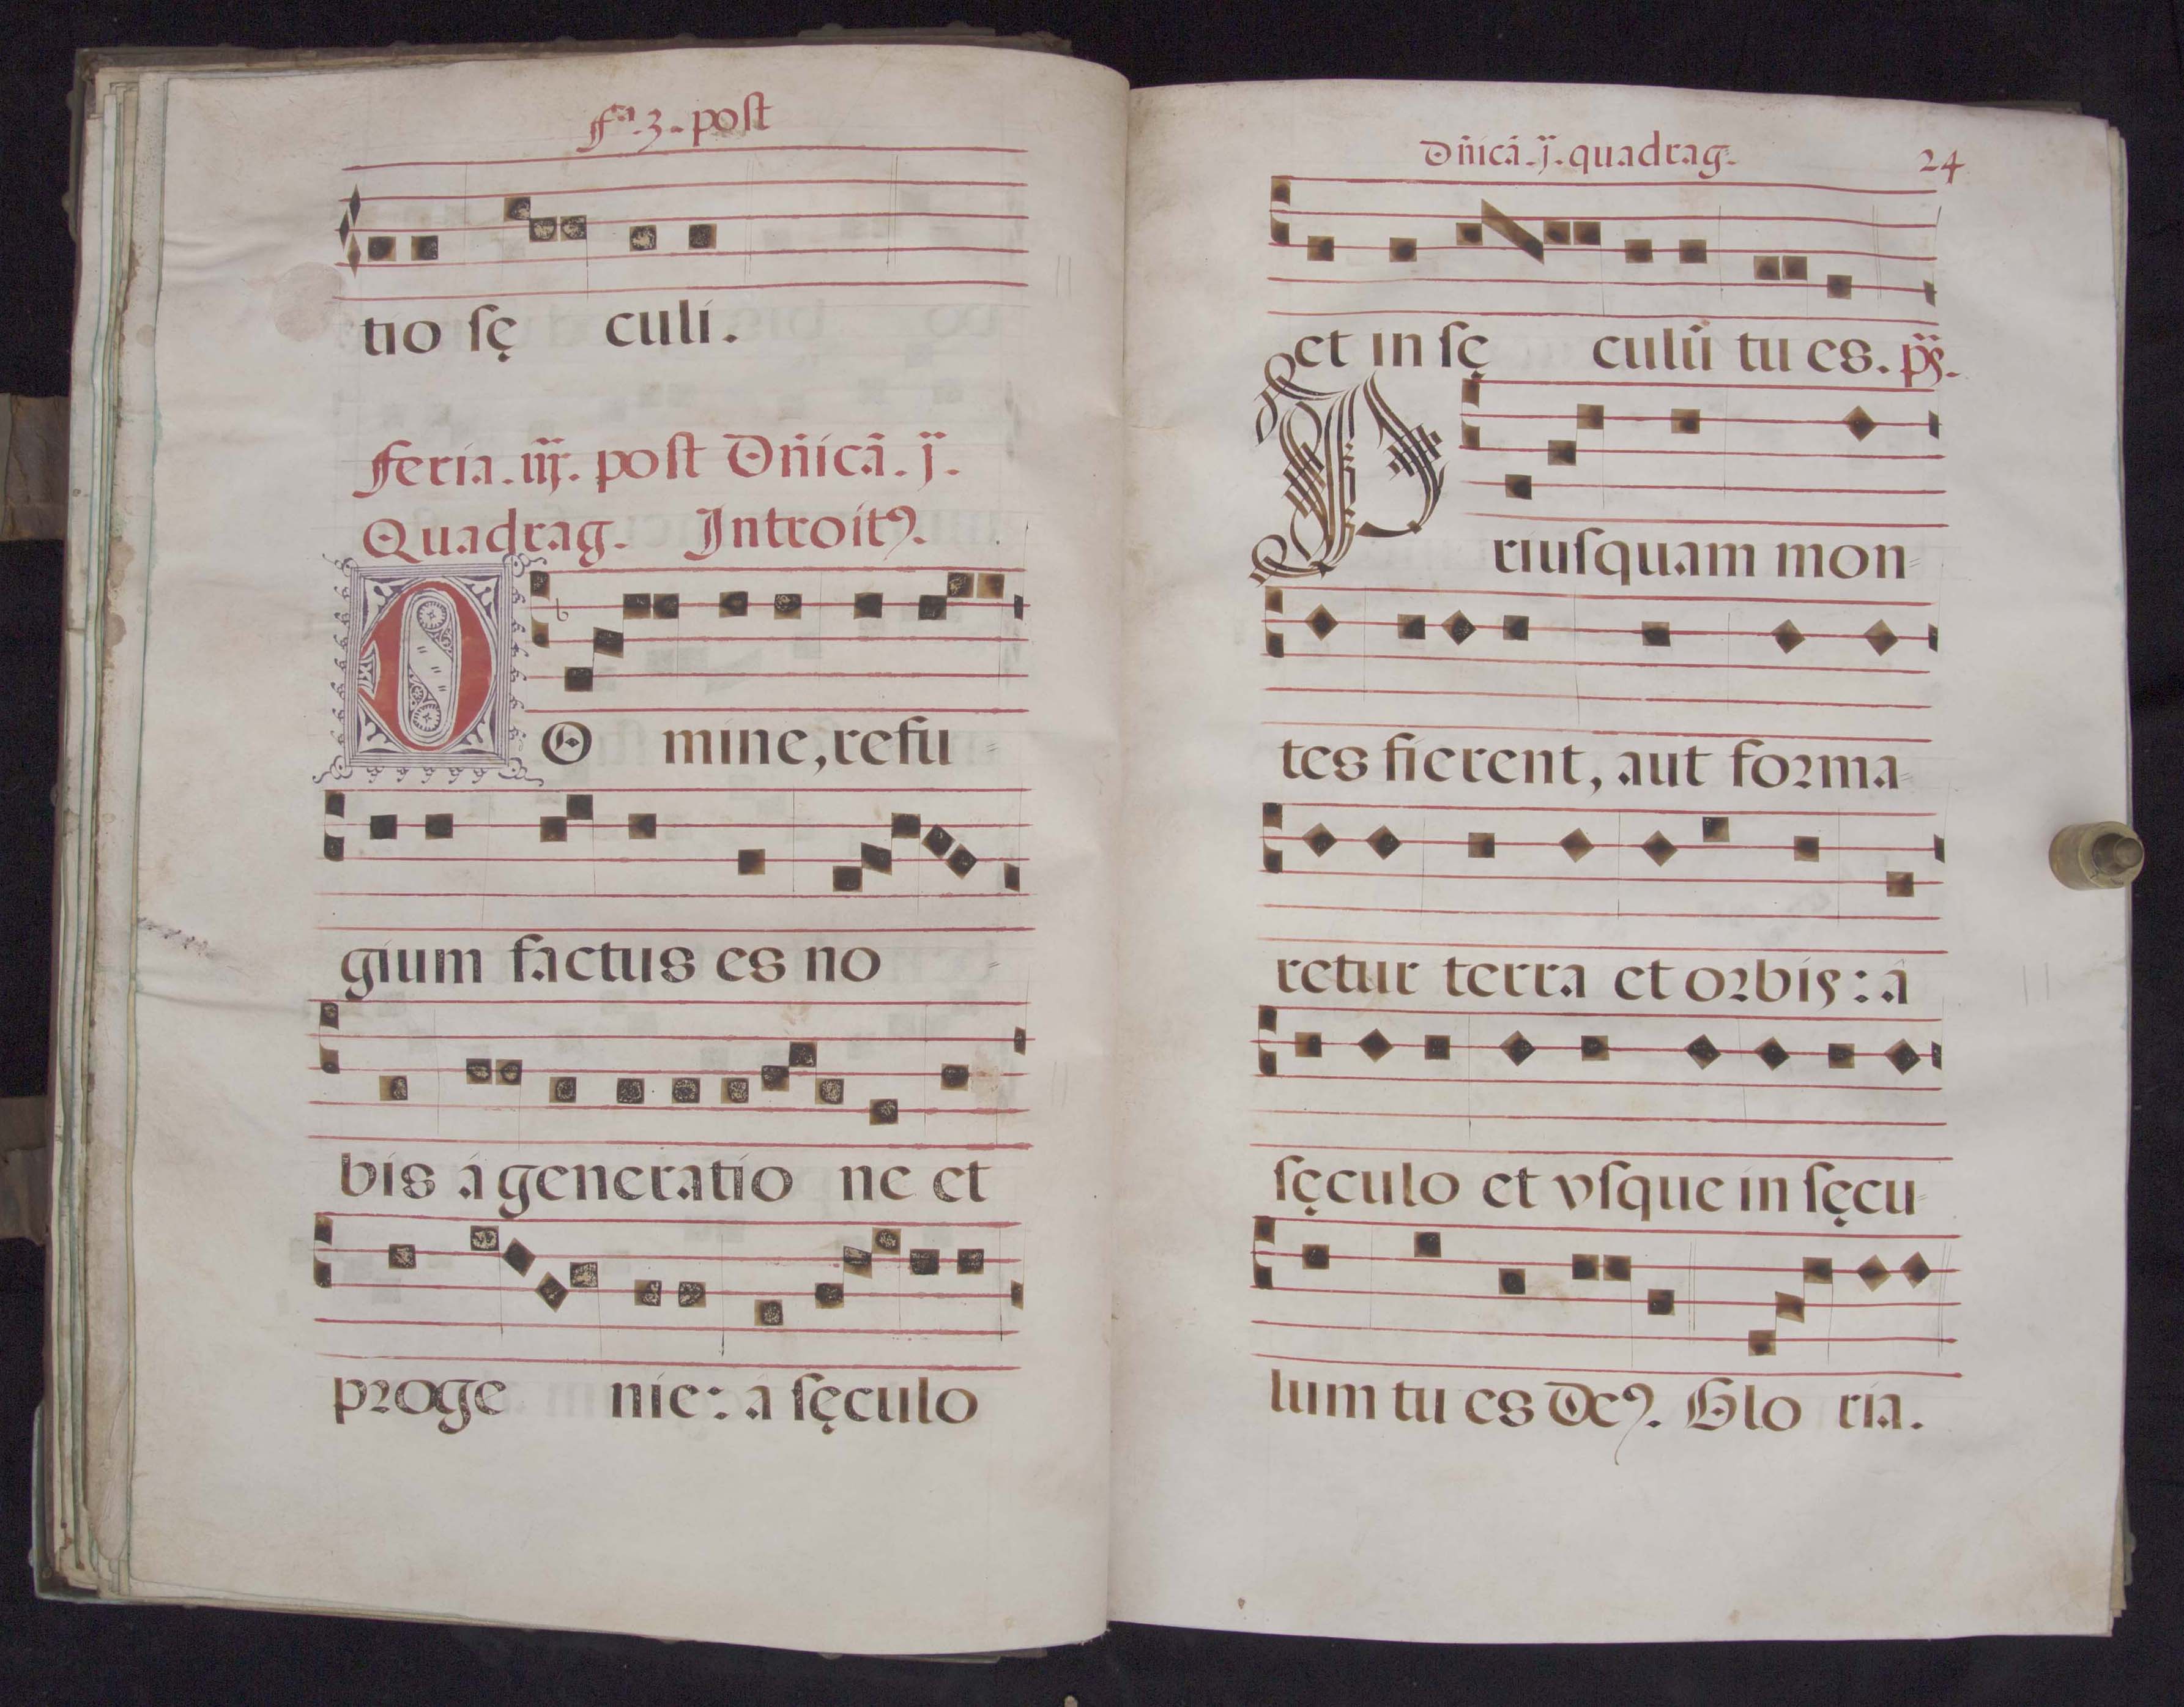 fᵃ.3. post
tio ſę culi.
Feria.iij. post Dñicā.j.
Quadrag. Introitꝰ.
DO mine, refu-
gium factus es no-
bis á generatio ne et
proge nie: á ſęculo
Dñicā.j. quadrag. 24
et in ſę culū tu es. ps.
Priuſquam mon-
tes fierent, aut forma-
retur terra et orbis: â
ſęculo et vſque in ſęcu-
lum tu es Deꝰ. Glo ria.